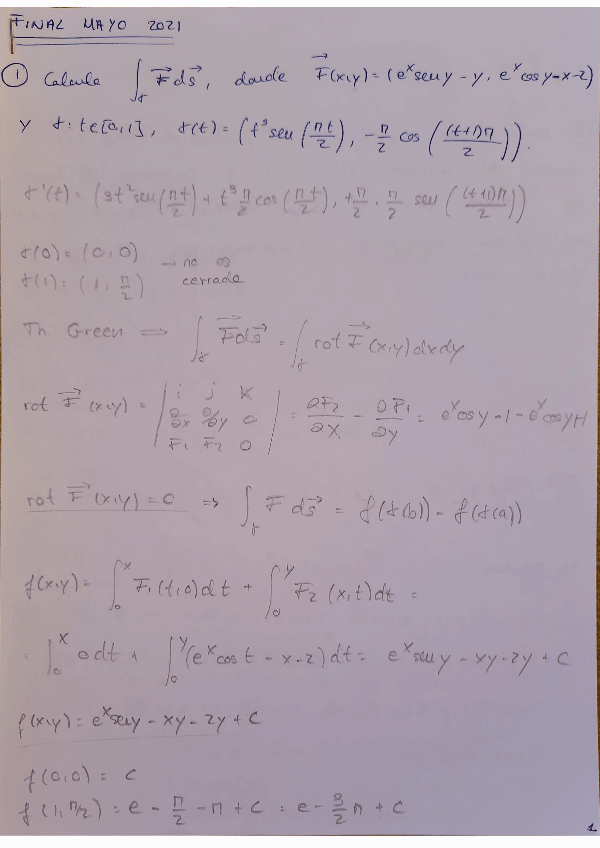 FINAL MAYO 2021
① Calcule ∫_γ F⃗ ds⃗, donde F⃗(x,y) = (e^x sen y - y, e^x cos y - x - 2)
y γ: t∈[0,1], γ(t) = (t³ sen(πt/2), -π/2 cos((t+1)π/2)).
γ'(t) = (3t² sen(πt/2) + t³ π/2 cos(πt/2), +π/2 · π/2 sen((t+1)π/2))
γ(0) = (0,0) → no es
γ(1) = (1, π/2) cerrada
Th Green ⇒ ∫_γ F⃗ ds⃗ = ∫_γ rot F⃗(x,y) dxdy
rot F⃗(x,y) = | i j k ; ∂/∂x ∂/∂y 0 ; F₁ F₂ 0 | = ∂F₂/∂x - ∂F₁/∂y = e^x cos y - 1 - e^x cos y + 1
rot F⃗(x,y) = 0 ⇒ ∫_γ F ds⃗ = f(γ(b)) - f(γ(a))
f(x,y) = ∫₀^x F₁(t,0) dt + ∫₀^y F₂(x,t) dt =
= ∫₀^x 0 dt + ∫₀^y (e^x cos t - x - 2) dt = e^x sen y - xy - 2y + C
f(x,y) = e^x sen y - xy - 2y + C
f(0,0) = C
f(1, π/2) = e - π/2 - π + C = e - 3/2 π + C
1